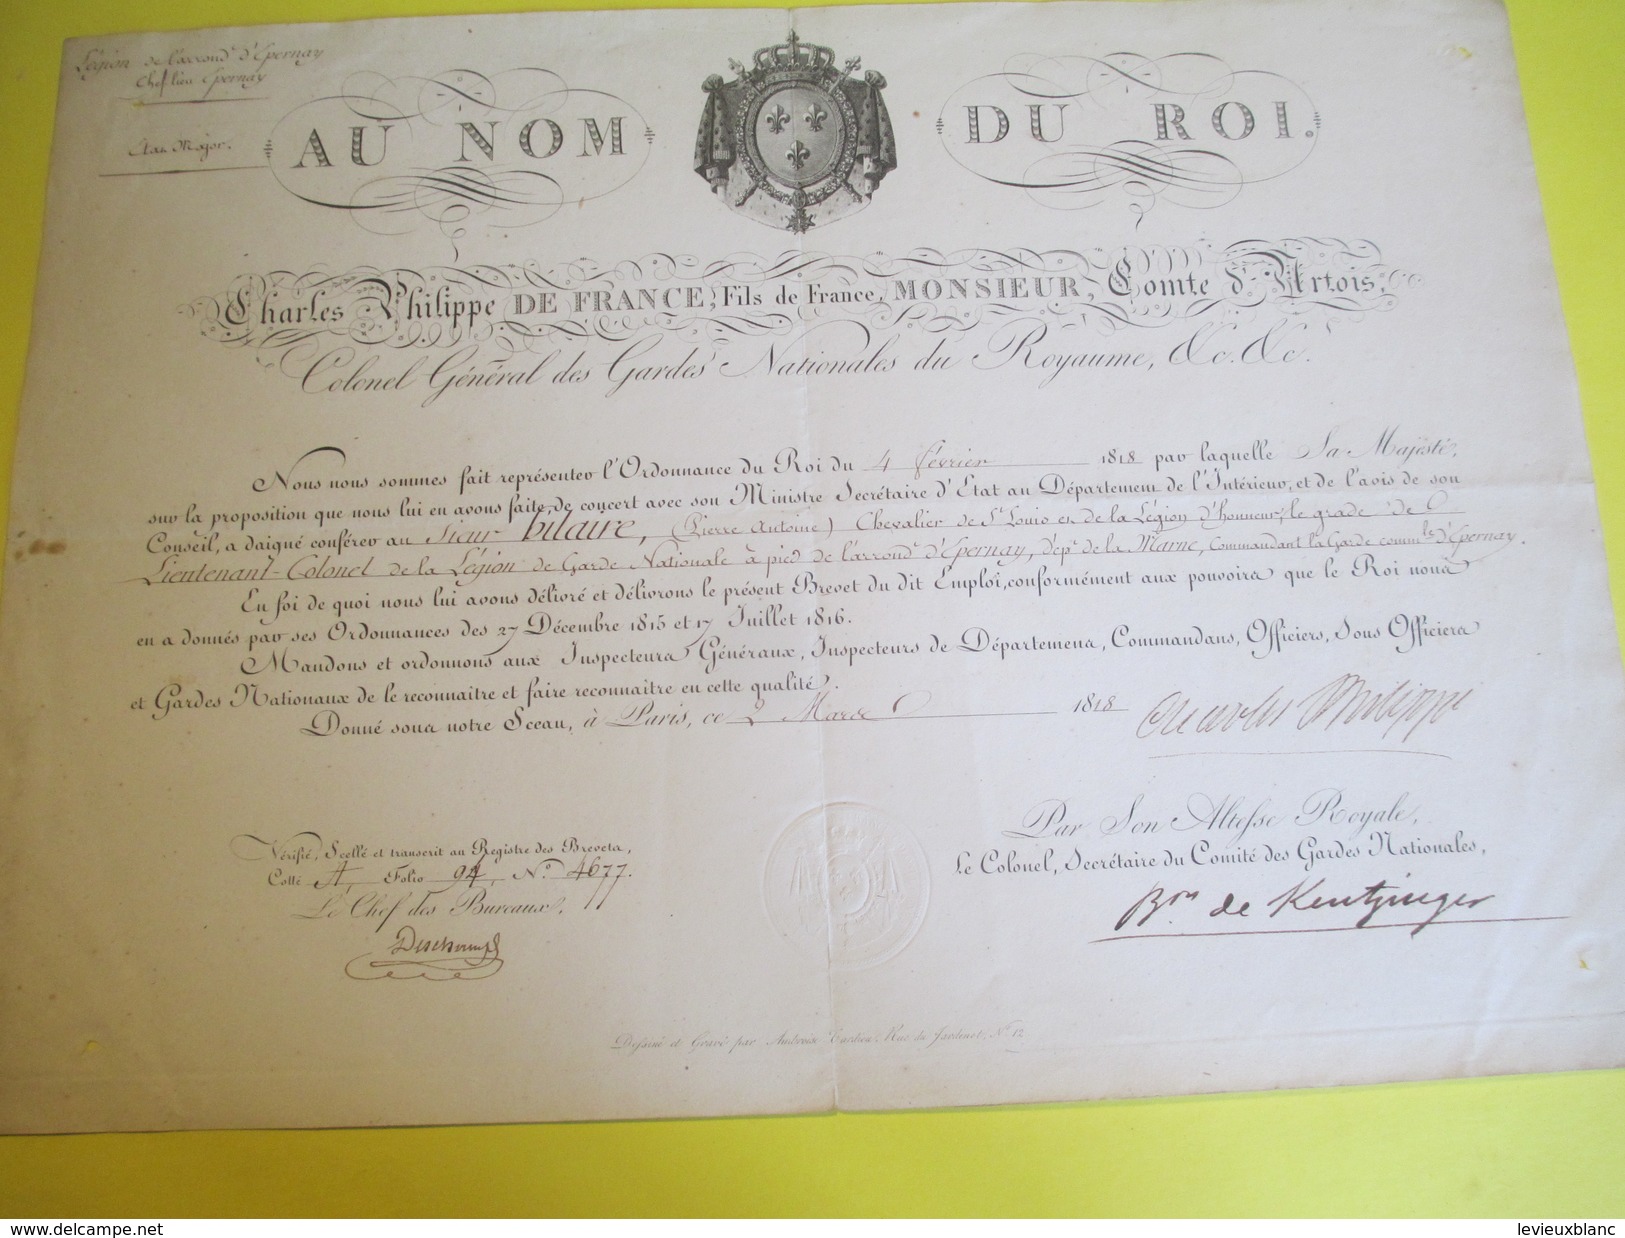 Légion de l'arrond.t d'Epernay
Chef lieu Epernay
Etat Major.
AU NOM DU ROI.
Charles Philippe DE FRANCE, Fils de France, MONSIEUR, Comte d'Artois,
Colonel Général des Gardes Nationales du Royaume, &c. &c.
Nous nous sommes fait représenter l'Ordonnance du Roi du 4 février 1818 par laquelle Sa Majesté,
sur la proposition que nous lui en avons faite, de concert avec son Ministre Secrétaire d'Etat au Département de l'Intérieur, et de l'avis de son
Conseil, a daigné conférer au Sieur hilaire, (Pierre Antoine) Chevalier de St Louis et de la Légion d'honneur, le grade de
Lieutenant-Colonel de la Légion de Garde Nationale à pied de l'arrond.t d'Epernay, dép.t de la Marne, Commandant la Garde comm.le d'Epernay.
En foi de quoi nous lui avons délivré et délivrons le présent Brevet du dit Emploi, conformément aux pouvoirs que le Roi nous
en a donnés par ses Ordonnances des 27 Décembre 1815 et 17 Juillet 1816.
Mandons et ordonnons aux Inspecteurs Généraux, Inspecteurs de Départemens, Commandans, Officiers, Sous Officiers
et Gardes Nationaux de le reconnaître et faire reconnaître en cette qualité.
Donné sous notre Sceau, à Paris, ce 2 Mars 1818
Charles Philippe
Par Son Altesse Royale,
Le Colonel, Secrétaire du Comité des Gardes Nationales,
Bon de Kentzinger
Vérifié, Scellé et transcrit au Registre des Brevets,
Cotté A, Folio 94, No. 4677.
Le Chef des Bureaux,
Dessiné et Gravé par Ambroise Tardieu, Rue du Jardinet, No 12
levieuxblanc